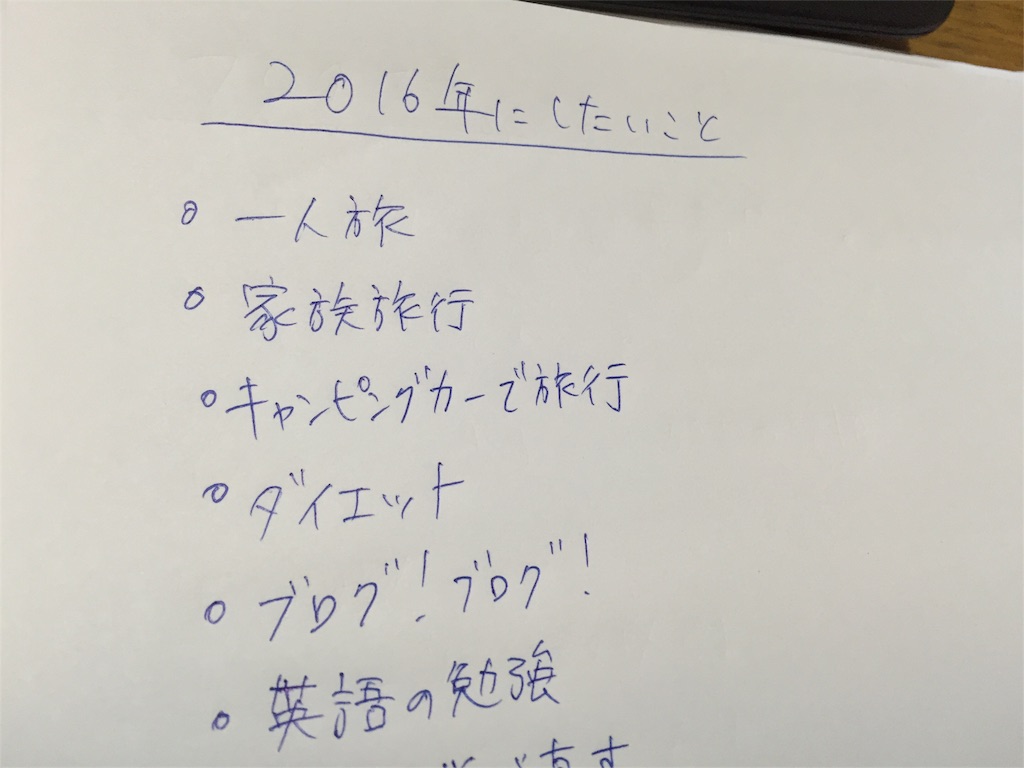 2016年にしたいこと
○ 一人旅
○ 家族旅行
○ キャンピングカーで旅行
○ ダイエット
○ ブログ！ブログ！
○ 英語の勉強